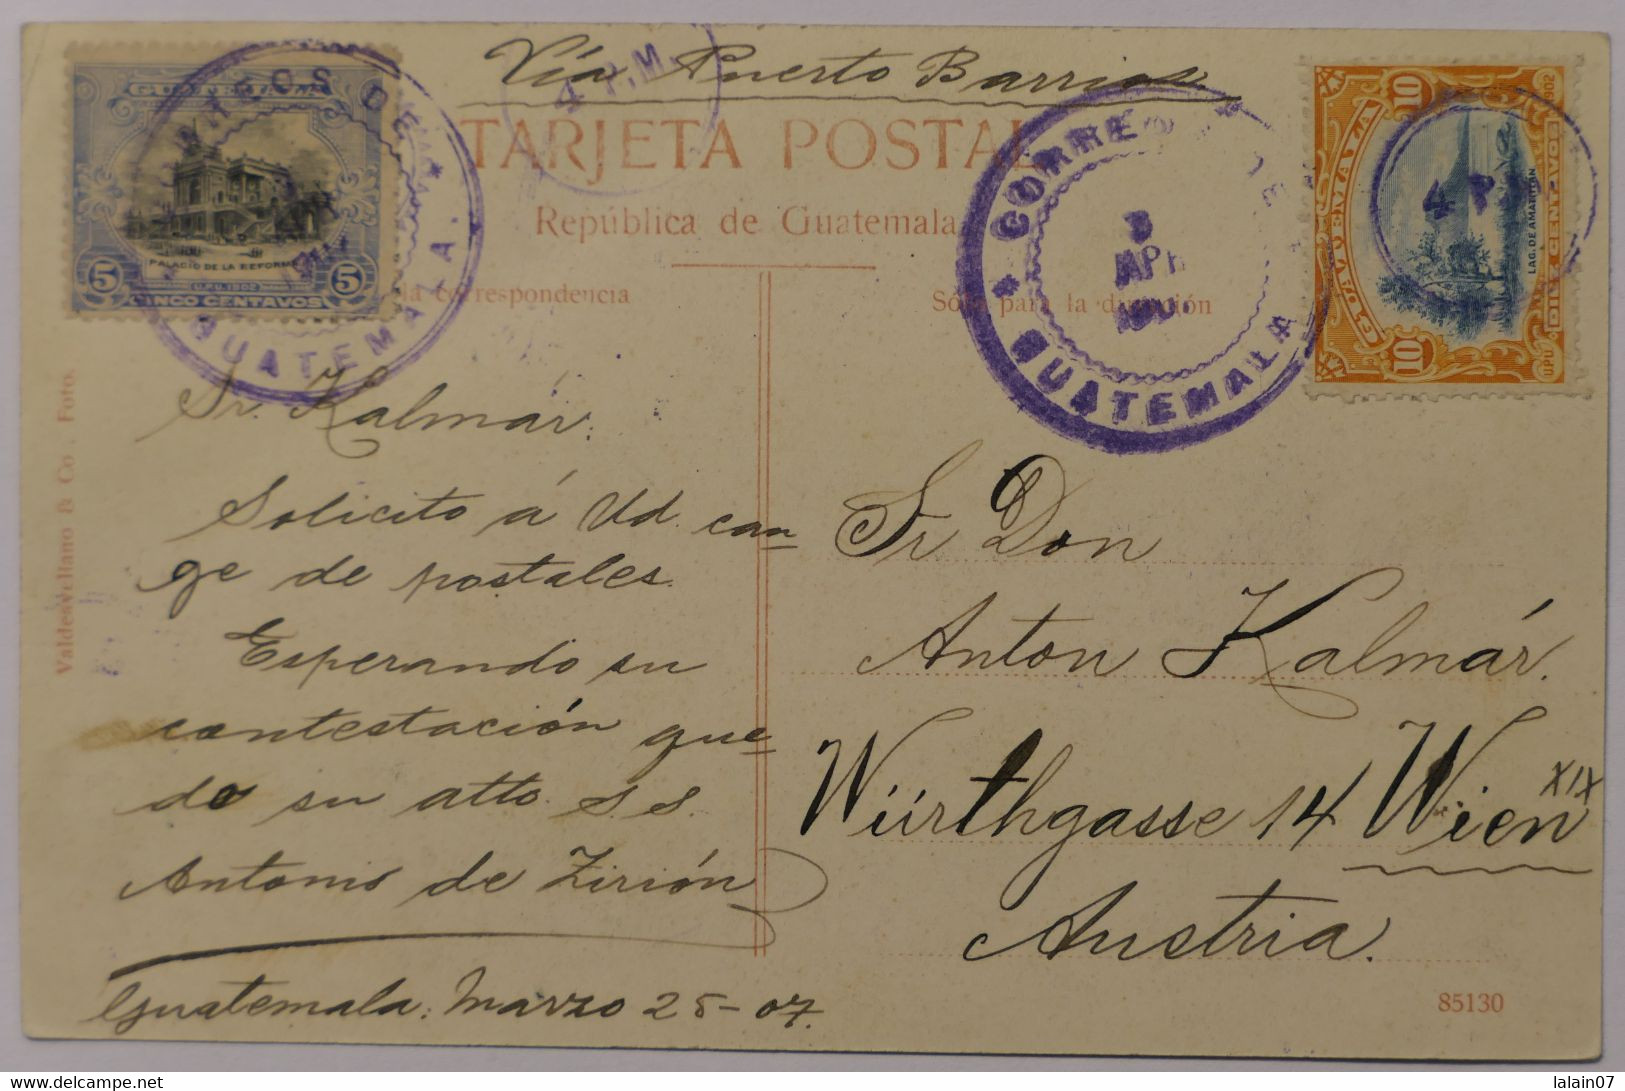 Vía Puerto Barrios
TARJETA POSTAL
República de Guatemala
la correspondencia
Sólo para la dirección
GUATEMALA
PALACIO DE LA REFORMA
U.P.U. 1902
5 CINCO CENTAVOS 5
CORREOS DE
GUATEMALA.
4 P.M.
CORREOS DE
GUATEMALA
3
APR
10 10
GUATEMALA
LAG. DE AMATITLAN
DIEZ CENTAVOS
UPU 1902
4 P.
Sr. Kalmár:
Solicito á Ud. can-
ge de postales.
Esperando su
contestación que-
do su atto. s.s.
Antonio de Zirión
Guatemala: Marzo 28-07.
Sr Don
Anton Kalmár.
Würthgasse 14 Wien XIX
Austria.
85130
Valdeavellano & Co. Foto.
www.delcampe.net
lalain07